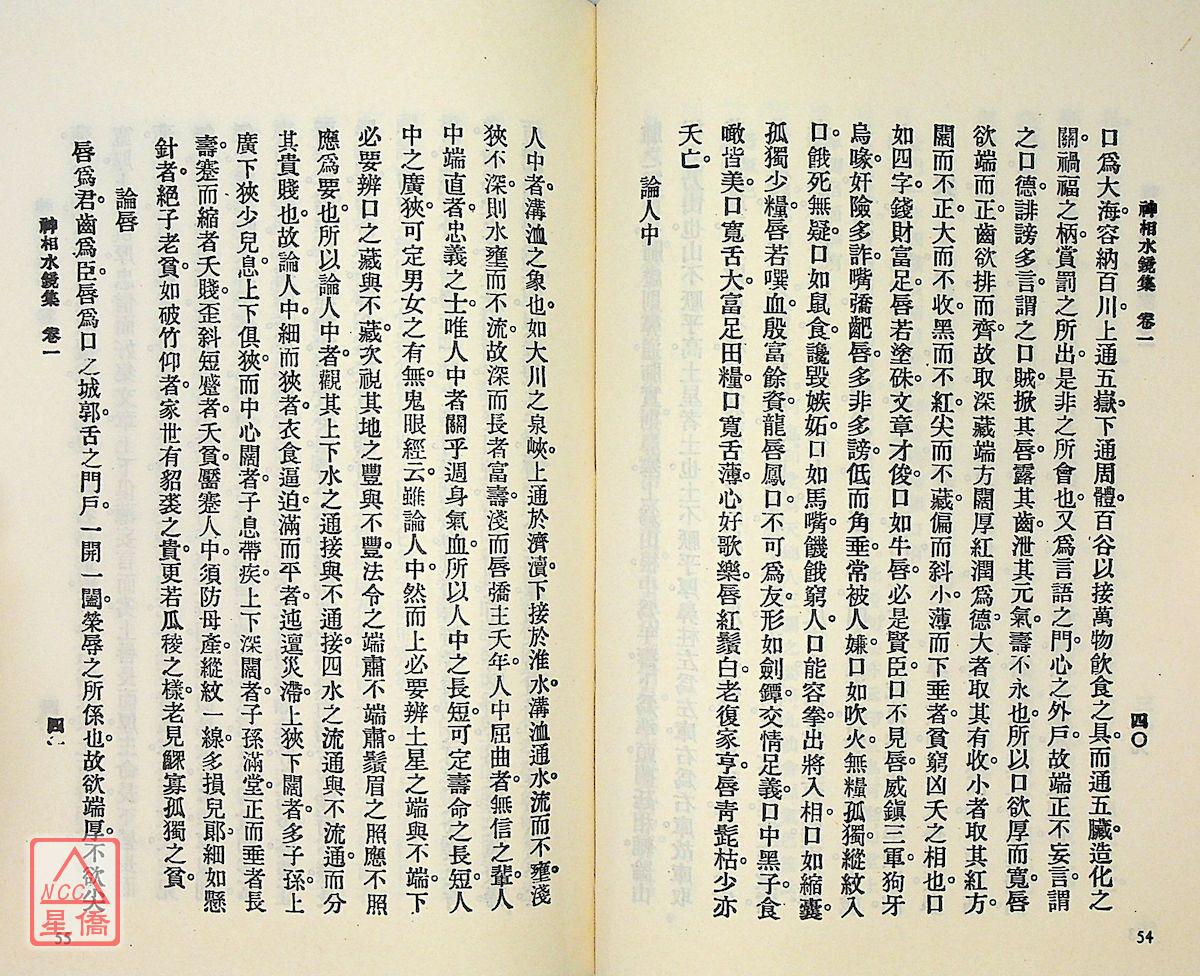 神相水鏡集 卷一
四〇
口爲大海。容納百川。上通五嶽。下通周體。百谷以接。萬物飲食之具。而通五臟。造化之
關。禍福之柄。賞罰之所出。是非之所會也。又爲言語之門。心之外戶。故端正不妄言。謂
之口德。誹謗多言。謂之口賊。掀其唇。露其齒。泄其元氣。壽不永也。所以口欲厚而寬。唇
欲端而正。齒欲排而齊。故取深藏端方。闊厚紅潤爲德。大者取其有收。小者取其紅方。
闊而不正。大而不收。黑而不紅。尖而不藏。偏而斜。小薄而下垂者。貧窮凶夭之相也。口
如四字。錢財富足。唇若塗硃。文章才俊。口如牛唇。必是賢臣。口不見唇。威鎮三軍。狗牙
烏喙。奸險多詐。嘴撟齙唇。多非多謗。低而角垂。常被人嫌。口如吹火。無糧孤獨。縱紋入
口。餓死無疑。口如鼠食。讒毀嫉妬。口如馬嘴。饑餓窮人。口能容拳。出將入相。口如縮囊。
孤獨少糧。唇若噀血。殷富餘資。龍唇鳳口。不可爲友。形如劍鐔。交情足義。口中黑子。食
噉皆美。口寬舌大。富足田糧。口寬舌薄。心好歌樂。唇紅鬚白。老復家亨。唇靑髭枯。少亦
夭亡。
論人中
54
人中者。溝洫之象也。如大川之泉峽。上通於濟瀆。下接於淮水。溝洫通。水流而不壅。淺
狹不深。則水壅而不流。故深而長者富壽。淺而唇撟主夭年。人中屈曲者。無信之輩。人
中端直者。忠義之士。唯人中者。關乎週身氣血。所以人中之長短。可定壽命之長短。人
中之廣狹。可定男女之有無。鬼眼經云。雖論人中。然而上必要辨土星之端與不端。下
必要辨口之藏與不藏。次視其地之豐與不豐。法令之端肅不端肅。鬚眉之照應不照
應爲要也。所以論人中者。觀其上下水之通接與不通接。四水之流通與不流通。而分
其貴賤也。故論人中。細而狹者。衣食逼迫。滿而平者。迍邅災滯。上狹下闊者。多子孫。上
廣下狹少兒息。上下俱狹而中心闊者。子息帶疾。上下深闊者。子孫滿堂。正而垂者長
壽。蹇而縮者夭賤。歪斜短蹙者。夭貧。黶蹇人中。須防母產。縱紋一線。多損兒郞。細如懸
針者。絕子老貧。如破竹仰者。家世有貂裘之貴。更若瓜稜之樣。老見鰥寡孤獨之貧。
論唇
唇爲君。齒爲臣。唇爲口之城郭。舌之門戶。一開一闔。榮辱之所係也。故欲端厚。不欲尖
神相水鏡集 卷一
55
NCC
星僑